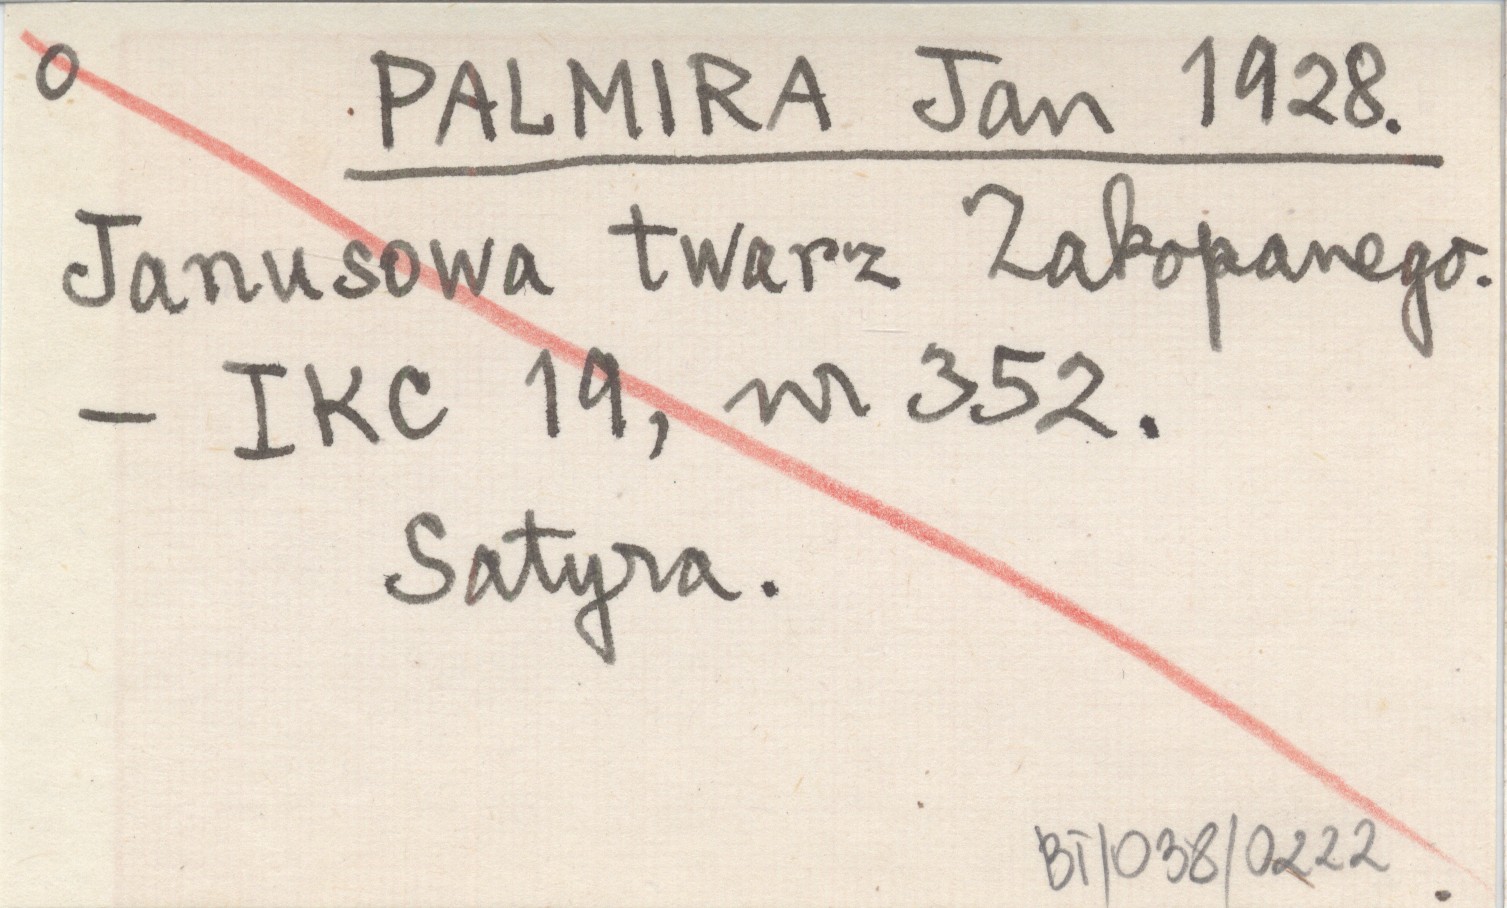 O PALMIRA Jan 1928.
Janusowa twarz Zakopanego.
– IKC 19, nr 352.
Satyra.
BT/038/0222